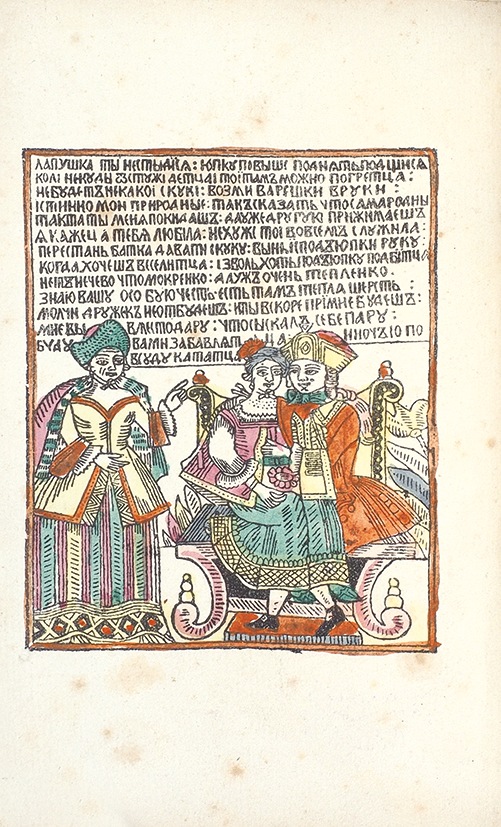 ЛАПУШКА ТЫ НЕСТЫДИСЯ: ЮПКУ ПОВЫШЕ ПОДНЯТЬ ПОДЩИСЯ
КОЛІ НЕКУДЫ СТУЖІ ДЕТЦА ІТО ТАМЪ МОЖНО ПОГРЕТЦА:
НЕБУДЕТЪ НИКАКОІ СКУКІ: ВОЗМИ ВАРЕШКИ ВРУКИ:
ІСТИННО МОИ ПРИРОДНЫЕ: ТАКЪ СКАЗАТЬ ЧТО САМАРОДНЫ
ТАКТА ТЫ МЕНА ПОКИДАЕШЪ: АДУЖЕ ДРУГУЮ ПРИЖИМАЕШЪ
Я КАЖЕЦА ТЕБЯ ЛЮБІЛА: НЕХУЖЕ ТОІ ВОВСЕМЪ СЛУЖИЛА:
ПЕРЕСТАНЬ БАТКА ДАВАТИ СКУКУ: ВЫНИ ІСПОДЪ ЮПКИ РУКУ:
КОГДА ХОЧЕШЪ ВЕСЕЛИТЦА: ІЗВОЛЬ ХОТЬ ПОДЪ ЮПКУ ПОДБИТЦА
НЕТЪ НЕЧЕВО ЧТО МОКРЕНКО: АДУЖЪ ОЧЕНЬ ТЕПЛЕНКО:
ЗНАЮ ВАШУ ОСОБУЮ ЧЕСТЬ: ЕСТЬ ТАМЪ ТЕПЛА ШЕРСТЬ:
МОЛЧИ ДРУЖЕКЪ НЕОТБУДЕШЪ: ИТЫ ВСКОРЕ ПРІМНЕ БУДЕШЪ:
МНЕ ВЫ ВЛЕСТО ДАРУ: ЧТО СЫСКАЛЪ СЕБЕ ПАРУ:
БУДУ ВАМИ ЗАБАВЛАТЦА ІНОЧЬЮ ПО
ВСЮДУ КАТАТЦА